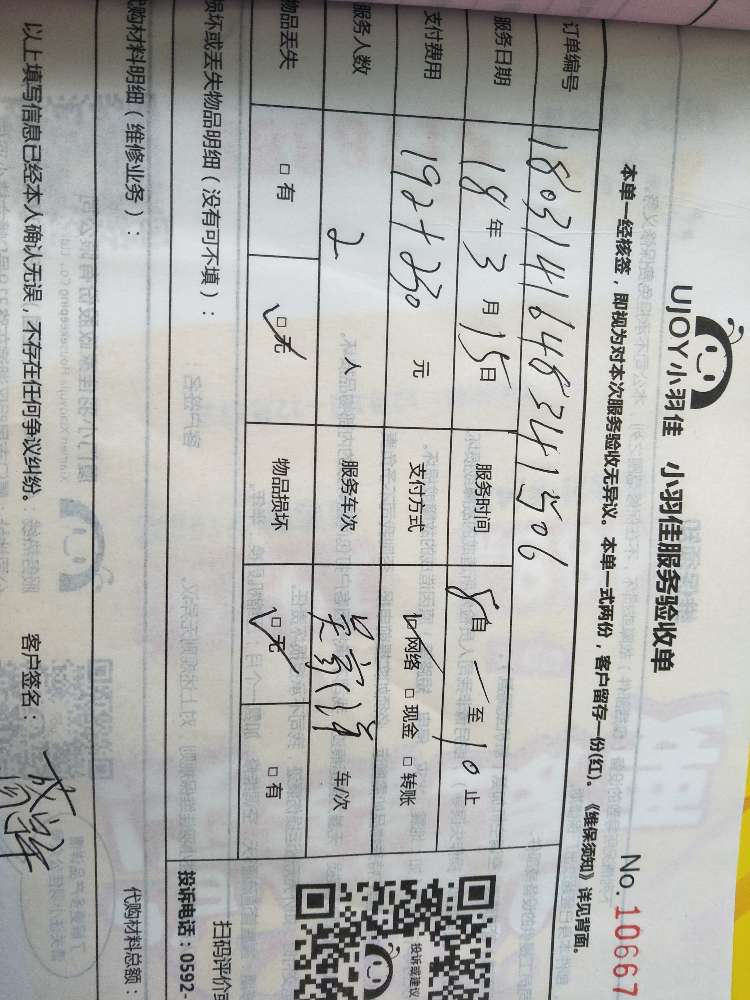 UJOY小羽佳 小羽佳服务验收单
No. 10667
本单一经核签，即视为对本次服务验收无异议。本单一式两份，客户留存一份(红)。《维保须知》详见背面。
订单编号 1803141648341506
服务日期 18年3月15日 服务时间 8自 — 至10止
支付费用 192+230 元 支付方式 ☑网络 □现金 □转账
服务人数 2 人 服务车次 车/次
物品丢失 □有 ☑无 物品损坏 ☑无 □有
损坏或丢失物品明细（没有可不填）：
扫码评价或
投诉或建议
投诉电话：0592-
代购材料明细（维修业务）：
代购材料总额：
以上填写信息已经本人确认无误，不存在任何争议纠纷。 客户签名：